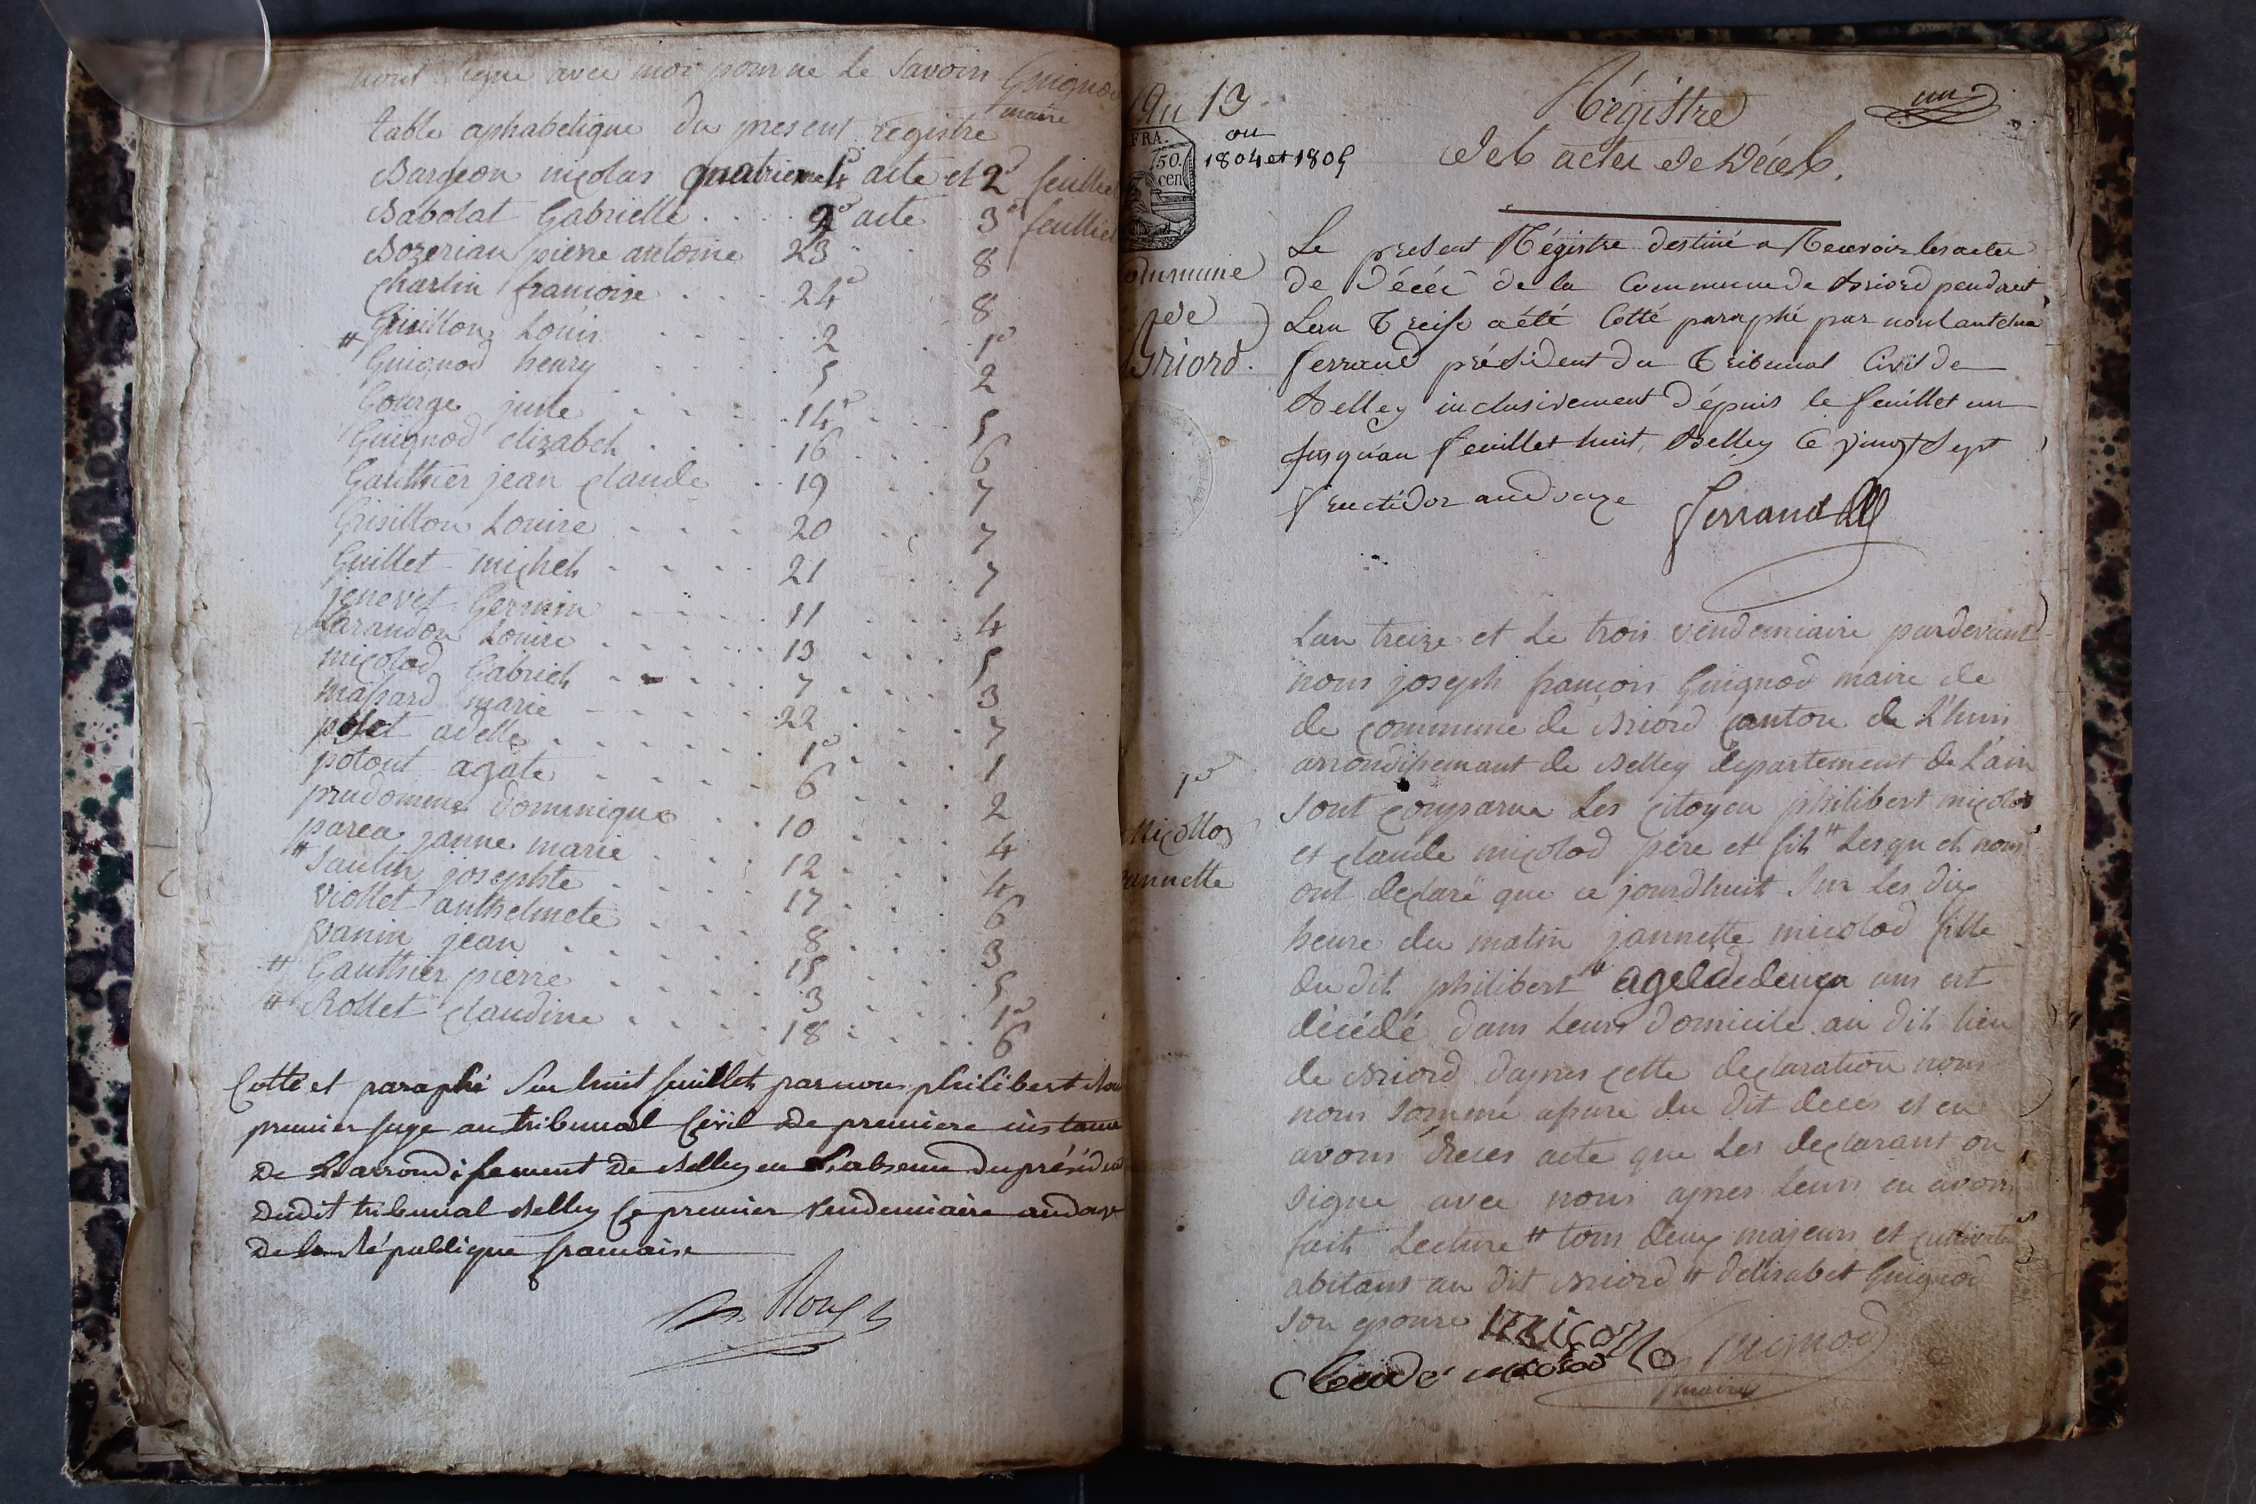 nont signe avec moi pour ne le savoir Guignod
maire
table aphabetique du present registre
Bargeon nicolas quatrieme 4 acte et 2 feuillet
Babolat Gabrielle . . . . 9e acte 3e feuillet
Bozerian pierre antoine 23 8
Charlin francoise . . . 24 8
# Guillon Louis . . . . 2 . . 1o
Guignod henry . . . . 5 2
Gourge juste . . . . 14 . . . 5
Guignod elizabeh . . . . 16 . . . 6
Gauthier jean claude . . 19 . . 7
Grisillon Louise . . . . 20 . . 7
Guillet michel . . . . 21 . . 7
jenevet Germin . . . . 11 . . . 4
Marandon Louise . . . . . 13 . . . 5
micolod Gabriel . . . . 7 . . . . 3
massard marie . . . . . 22 . . . . 7
polet adelle . . . . . . . 1o . . . . 1
potout agate . . . . . . 6 . . . 2
prudomme dominique . . 10 . . . . 4
parea janne marie . . . . 12 . . . . 4
# Saulin josephte . . . . . 17 . . . 6
Viollet anthelmete . . . . 8 . . . . 3
Vanin jean . . . . . . . 15 . . . . 5
# Gauthier pierre . . . . . 3 . . . . 1o
# Rollet claudine . . . . . 18 . . . . 6
Cotté et paraphé Sur huit feuillets par nous philibert
premier juge au tribunal Civil de premiere instance
de L'arrondissement de Belley en L'absence du président
dudit tribunal Belley ce premier vendemiaire an douze
de la République francaise
Roux
An 13
ou
1804 et 1805
FRA.
50.
cen
Commune
de
Briord.
un
Régistre
des actes de Décès.
Le present Régistre destiné a Recevoir les actes
de Décès de la Commune de Briord pendant
L'an Treise a été Cotté paraphé par nous anthelme
ferrand président du Tribunal Civil de
Belley inclusivement Dépuis le feuillet un
jusqu'au feuillet huit, Belley le vingt Sept
fructidor an douze Ferrand
1o
Micollod
Jannette
Lan treize et Le trois vendemiaire pardevant
nous joseph françois Guignod maire de
de commune de Briord canton de L'huis
arrondissemant de Belley département de L'ain
Sont comparu Les citoyen philibert micolod
et claude micolod père et fils # Lesquels nous
ont declaré que ce jourdhuit Sur Les dix
heure du matin jannette micolod fille
du dit philibert # agée de deux ans est
décédé dans Leurs domicile au dit lieu
de Briord dapres cette declaration nous
nous sommé assuré du dit deces et en
avons dresés acte que Les declarant on
signe avec nous apres Leurs en avoir
fait Lecture # tous deux majeurs et cultivateurs
abitans au dit Briord # d'elisabet Guignod
son epouse MICOLLO
Claude micolod Guignod
maire